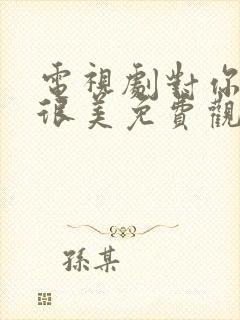 電視劇對你
很美免費觀
孫某